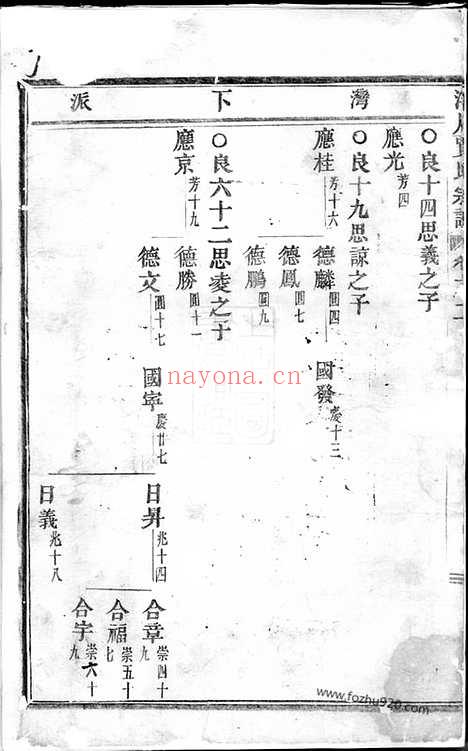 宗譜
灣
下
派
○良十四思義之子
應光芳四
○良十九思諒之子
應桂芳十六
德麟圓四
國發慶十三
德鳳圓七
德鵬圓九
○良六十二思凌之子
應京芳十九
德勝圓十一
德文圓十七
國寧慶廿七
日昇兆十四
合章崇四十九
合福崇五十七
合宇崇六十九
日義兆十八
nayona.cn
www.fozhu920.com